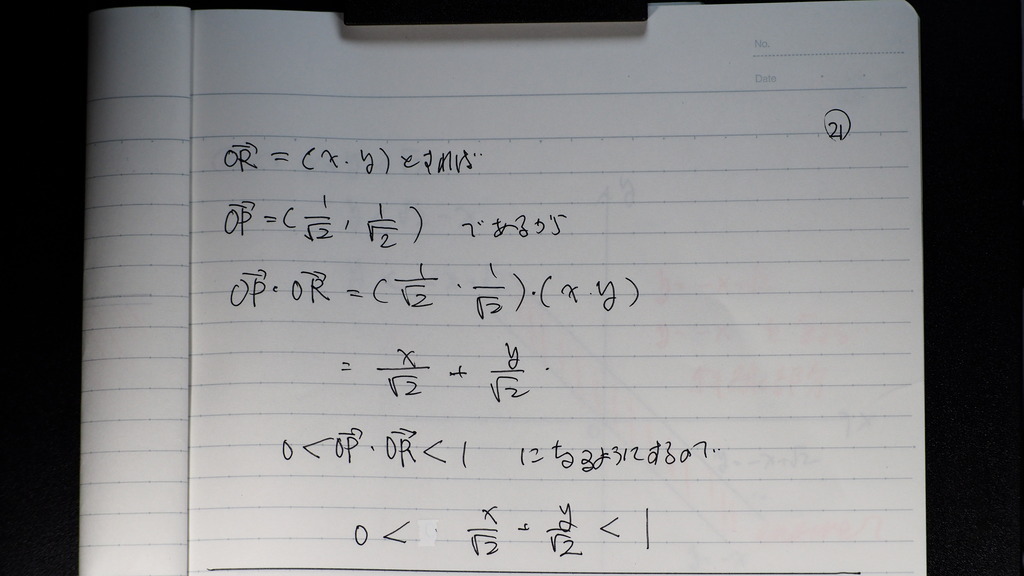 No.
Date
㉑
$\overrightarrow{OR} = (x . y)$ とすれば
$\overrightarrow{OP} = (\frac{1}{\sqrt{2}}, \frac{1}{\sqrt{2}})$ であるから
$\overrightarrow{OP} \cdot \overrightarrow{OR} = (\frac{1}{\sqrt{2}} . \frac{1}{\sqrt{2}}) \cdot (x . y)$
$= \frac{x}{\sqrt{2}} + \frac{y}{\sqrt{2}}.$
$0 < \overrightarrow{OP} \cdot \overrightarrow{OR} < 1$ になるようにするので
$0 < \frac{x}{\sqrt{2}} + \frac{y}{\sqrt{2}} < 1$